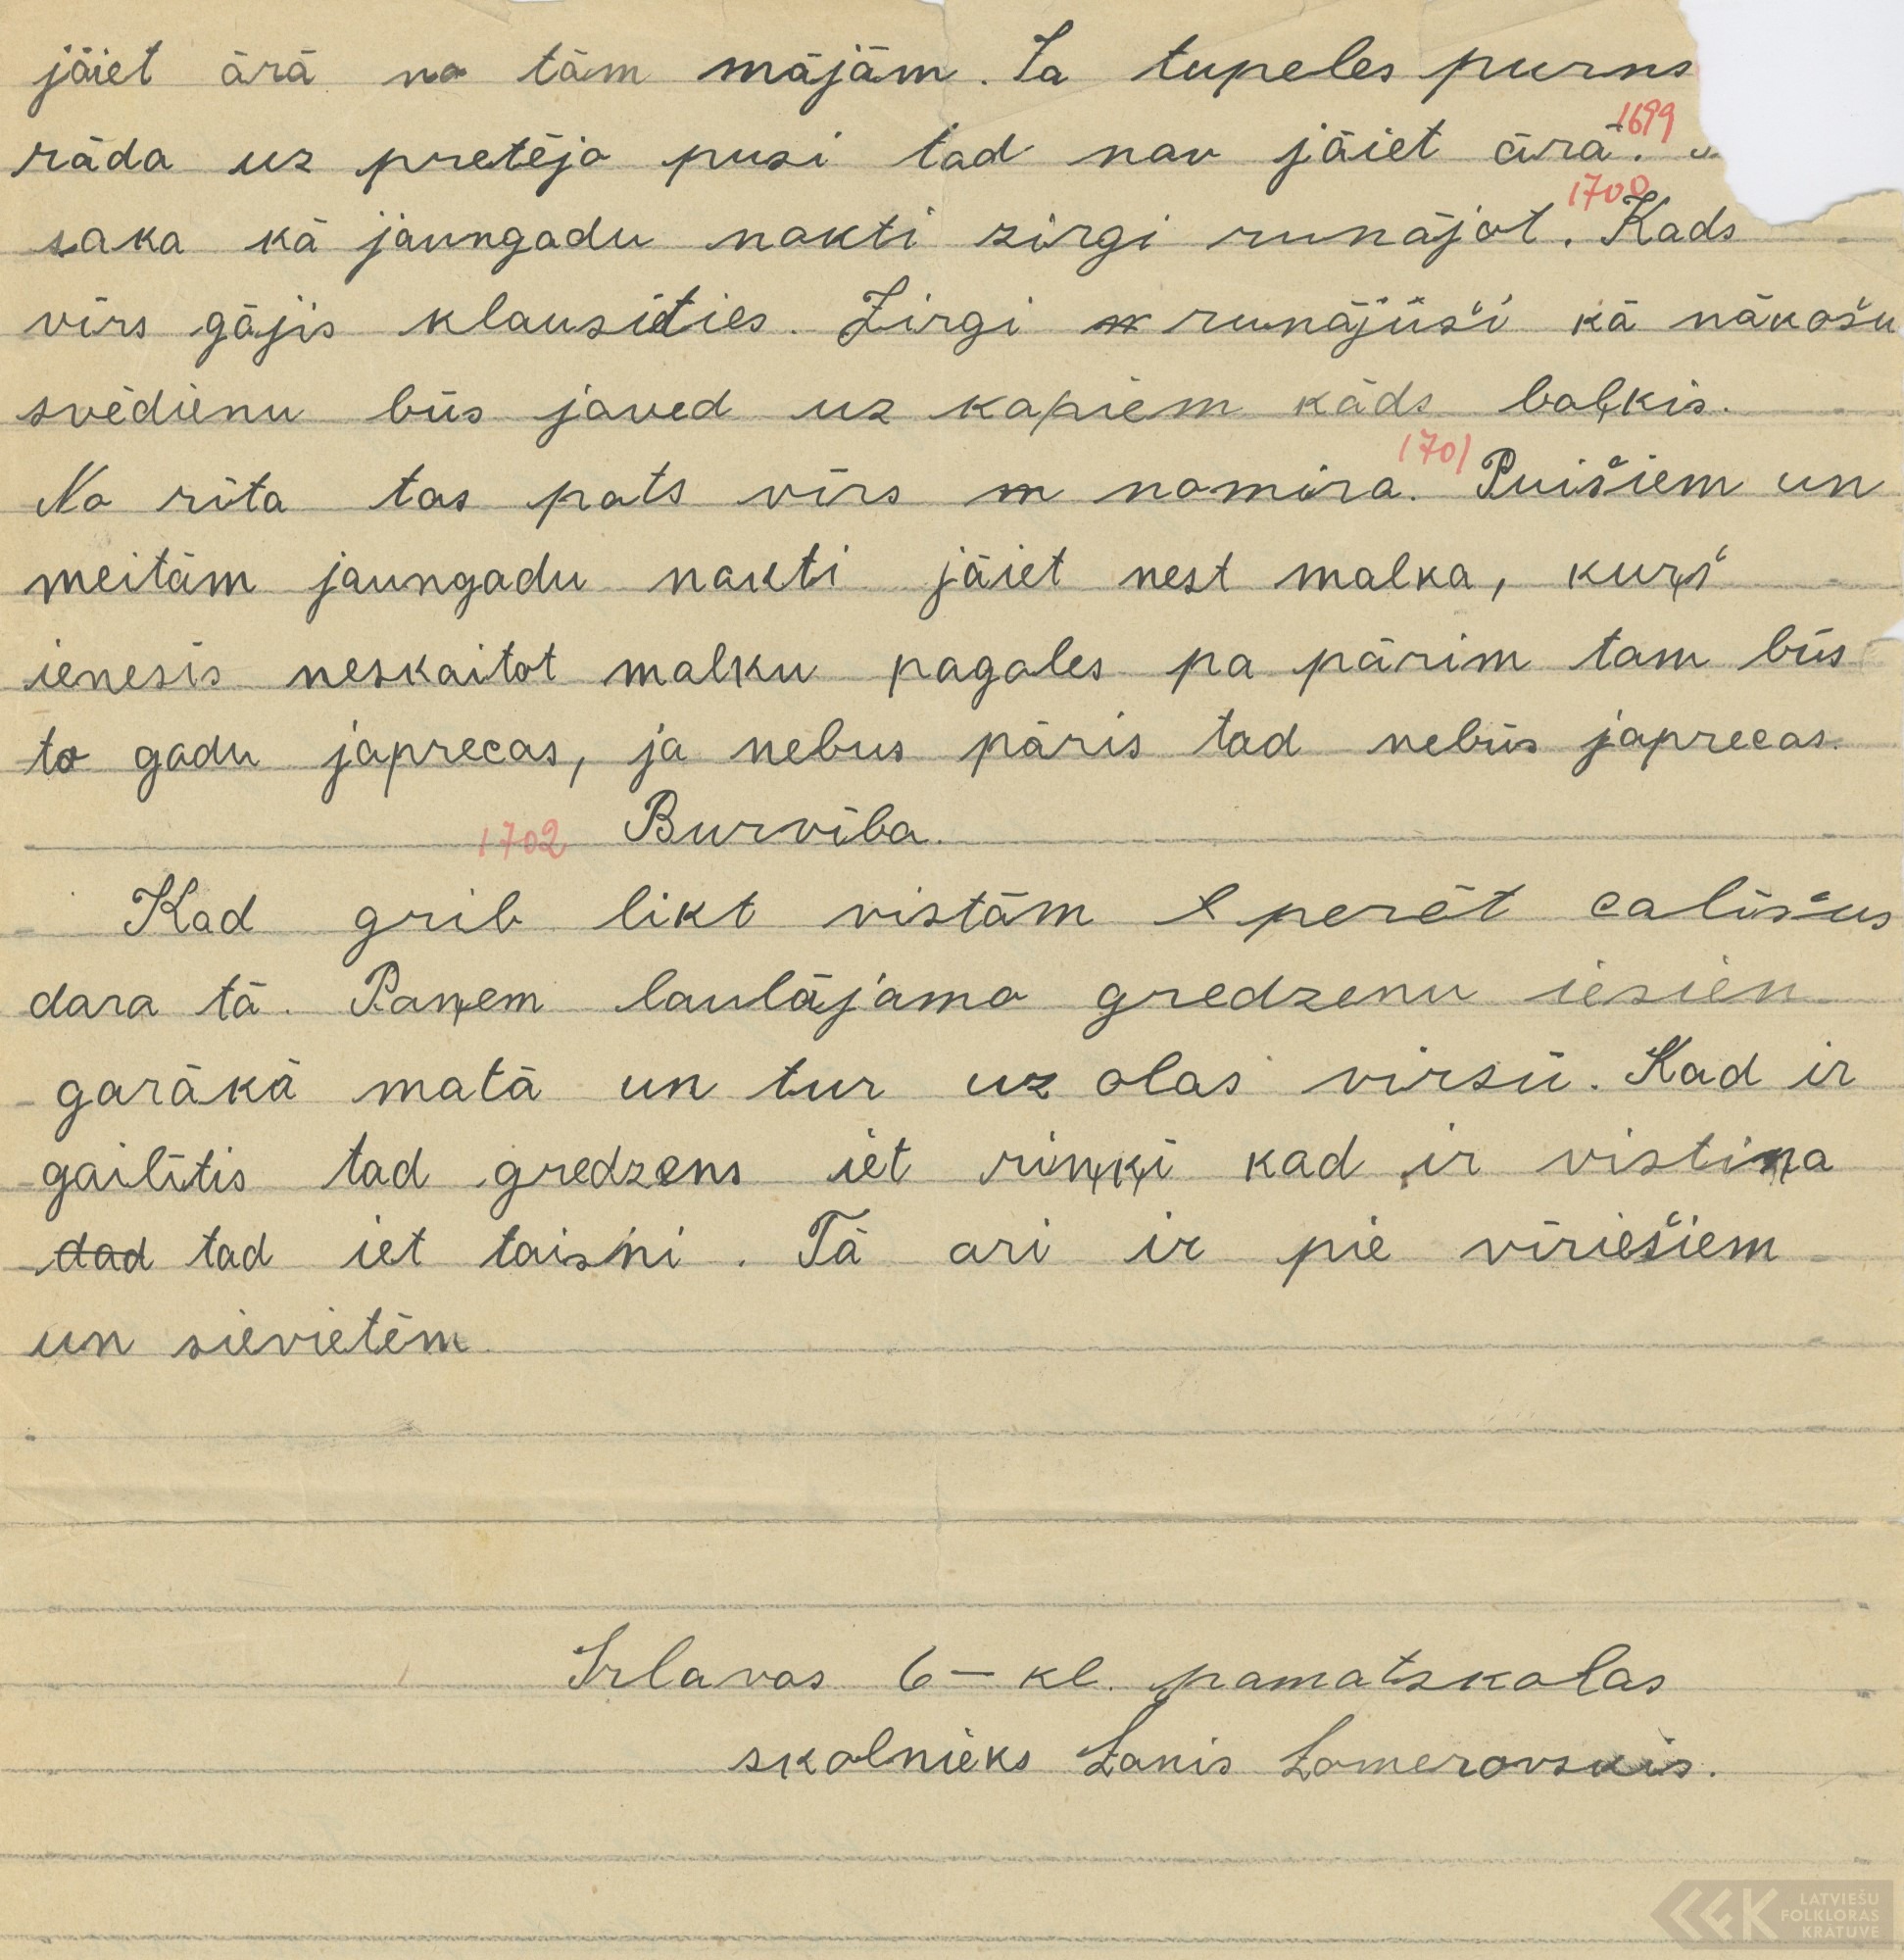 jāiet ārā no tām mājām. Ja tupeles purns
rāda uz pretējo pusi tad nav jāiet ārā. 1699
saka kā jaungadu nakti zirgi runājot. 1700 Kads
vīrs gājis klausīties. Zirgi runājūši kā nākošu
svēdienu būs javed uz kapiem kāds baļķis.
No rīta tas pats vīrs nomira. 1701 Puišiem un
meitām jaungadu nakti jāiet nest malka, kuŗš
ienesīs neskaitot malku pagales pa pārim tam būs
to gadu japrecas, ja nebus pāris tad nebūs japrecas.
1702 Burvība.
Kad grib likt vistām perēt calīšus
dara tā. Paņem laulājamo gredzenu iesien
garākā matā un tur uz olas virsū. Kad ir
gailītis tad gredzens iet riņķī kad ir vistiņa
dad tad iet taisni. Tā ari ir pie vīriešiem
un sievietēm.
Irlavas 6 – kl. pamatskolas
skolnieks Žanis Lomerovskis.
LATVIEŠU
FOLKLORAS
KRĀTUVE